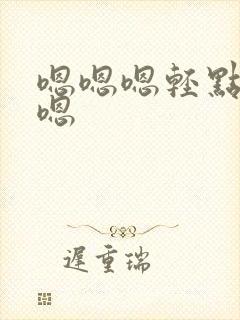 嗯嗯嗯輕點
嗯
遲重瑞